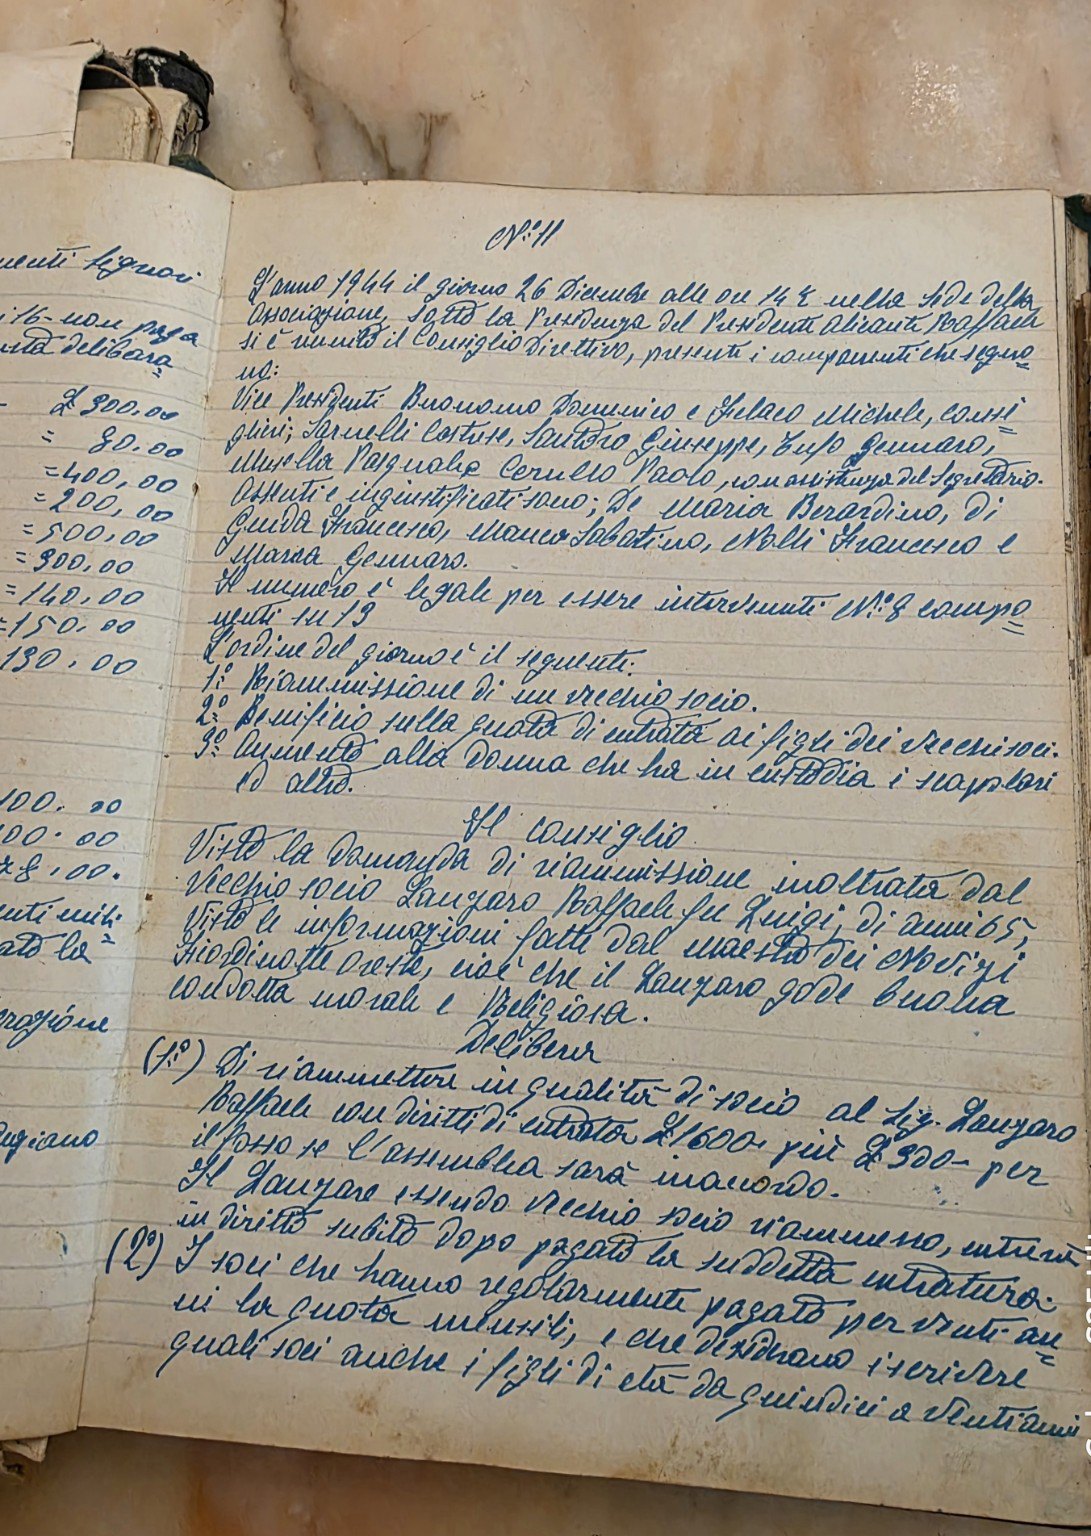 menti Signori
non paga
delibera=
£ 300,00
= 80,00
=400,00
=200,00
=500,00
=300,00
=140,00
=150,00
130,00
100,00
100,00
78,00.
ato la
razione
N.° 11
L'anno 1944 il giorno 26 Dicembre alle ore 14 e nella sede della
Associazione, sotto la Presidenza del Presidente Alicante Raffaele
si è riunito il Consiglio Direttivo, presenti i componenti che seguo=
no:
Vice Presidenti Buonomo Domenico e Michele, consi=
glieri; Sarnelli Santoro Giuseppe, Gennaro,
Musella Pasquale Cerullo Paolo, con assistenza del Segretario.
Assenti e ingiustificati sono; De Maria Berardino, di
Guida Francesco, Manco Sabatino, Nolli Francesco e
Marra Gennaro.
Il numero è legale per essere intervenuti N.° 8 compo=
nenti su 13
L'ordine del giorno è il seguente:
1.° Riammissione di un vecchio socio.
2.° Benificio sulla quota di entrata ai figli dei vecchi soci.
3.° Aumento alla donna che ha in custodia i scapolari
ed altro.
Il Consiglio
Visto la domanda di riammissione inoltrata dal
vecchio socio Lanzaro Raffaele fu Luigi, di anni 65,
Visto le informazioni fatte dal maestro dei Novizi
Oreste, cioè che il Lanzaro gode buona
condotta morale e Religiosa.
Delibera
(1.°) Di riammettere in qualità di socio al Sig. Lanzaro
Raffaele con diritti di entrata £ 1600- più £ 300- per
il fosso se l'assemblea sarà in acordo.
Il Lanzaro essendo vecchio socio riammesso, entrerà
in diritto subito dopo pagato la suddetta entratura.
(2°) I soci che hanno regolarmente pagato per venti an=
ni la quota mensili, e che desiderano iscrivere
quali soci anche i figli di età da quindici a venti anni